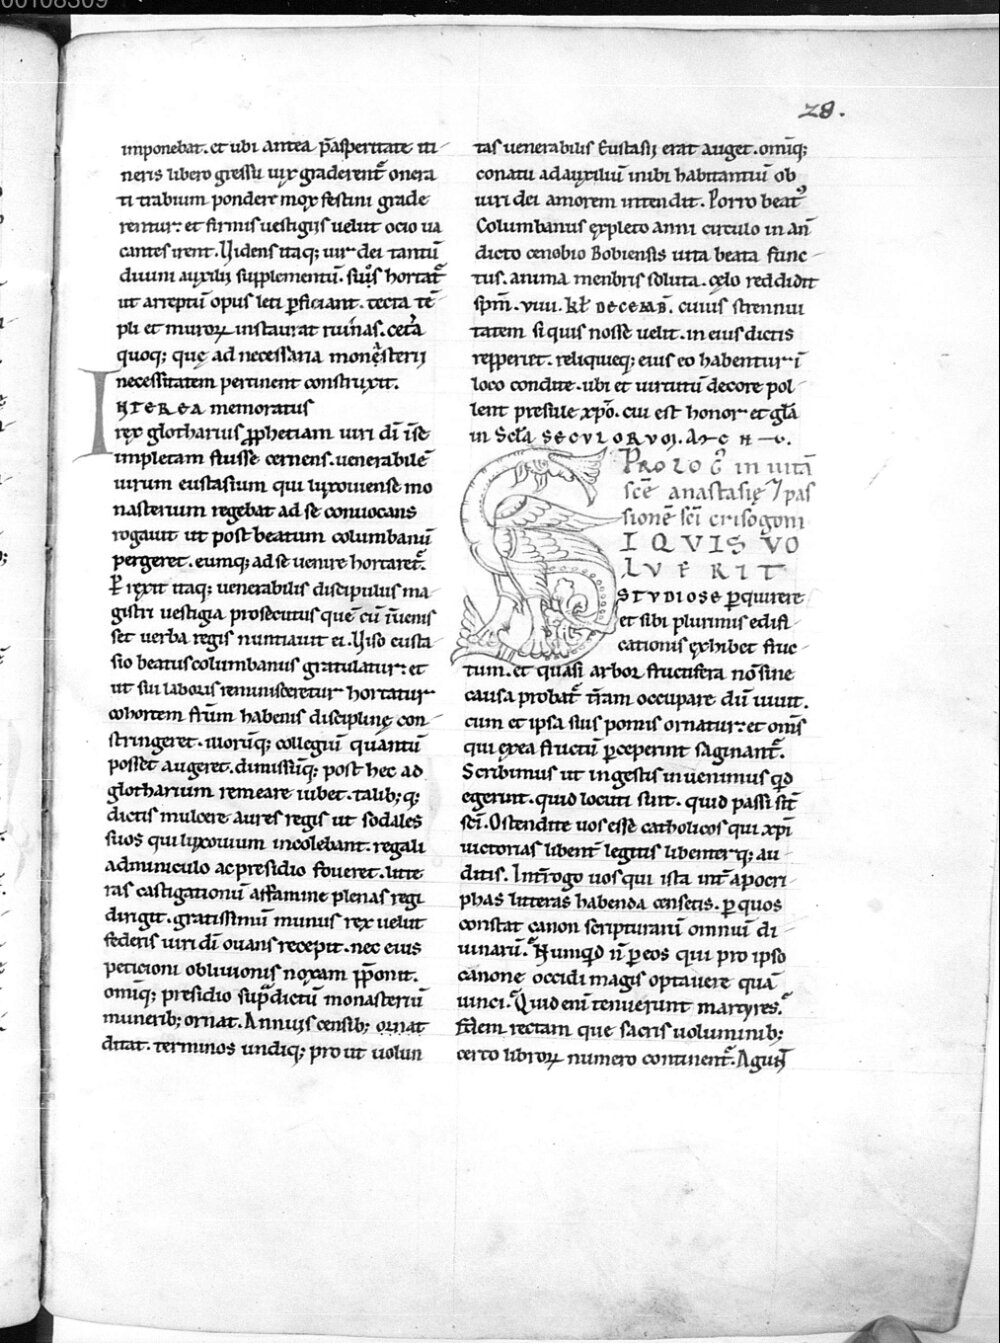 00108309
28.
imponebat. et ubi antea p̄asperitate iti
neris libero gressu uix graderent᷑ onera
ti trabium pondere mox festini grade
rentur: et firmis uestigiis uelut ocio ua
cantes irent. Uidens itaq; uir dei tantū
diuini auxilii supplementū. suos hortat᷑
ut arreptū opus leti ꝑficiant. tecta tē
pli et muroꝝ instaurat ruinas. cet̄a
quoq; quę ad necessaria monęsterii
necessitatem pertinent construxit.
INTEREA memoratus
rex glotharius ꝓphetiam uiri dī iste
impletam fuisse cernens. uenerabilē
uirum eustasium qui luxouiense mo
nasterium regebat ad se conuocans
rogauit ut post beatum columbanū
pergeret. eumq; ad se uenire hortaret᷑.
Perrexit itaq; uenerabilis discipulus ma
gistri uestigia prosecutus quē cū īueniś
set uerba regis nuntiauit ei. Uiso eusta
sio beatus columbanus gratulatur: et
ut sui laboris reminisceretur hortatur
cohortem fr̄um habenis disciplinę con
stringeret. illorūq; collegiū quantū
posset augeret. dimissūq; post hec ad
glotharium remeare iubet. talib; q;
dictis mulcere aures regis ut sodales
suos qui luxouium incolebant. regali
adminiculo ac presidio foueret. litte
ras castigationū affamine plenas regi
dirigit. gratissimū munus rex uelut
federis uiri dī ouans recepit. nec eius
peticioni obliuionis noxam p̄ponit.
omīq; presidio sup̄dictū monasteriū
munerib; ornat. Annuis censib;
ditat. terminos undiq; pro ut uolun
tas uenerabilis Eustasii erat auget. omīq;
conatu ad auxiliū inibi habitantiū ob
uiri dei amorem intendit. Porro beat᷒
Columbanus expleto anni circulo in an̄
dicto cenobio Bobiensis uita beata func
tus. anima menbris soluta. cęlo reddidit
sp̄m. VIIII. kł DECEMB̄. cuius strennui
tatem si quis nosse uelit. in eius dictis
repperiet. reliquieq; eius eo habentur ī
loco condite. ubi et uirtutū decore pol
lent presule xp̄o. cui est honor et gl̄a
in Sc̄la SECULORUM. AMEN.
PROLOG᷒ in uitā
sc̄e anastasię ⁊ pas
sionē sc̄i crisogoni
SI QUIS VO
LVERIT
STUDIOSE ꝑquirere
et sibi plurimis edifi
cationis exhibet fruc
tum. et quasi arbor fructifera nō sine
causa probat᷑ t̄ram occupare dū uiuit.
cum et ipsa suis pomis ornatur: et om̄s
qui ex ea fructū ꝑceperint saginant᷑.
Scribimus ut in gestis inuenimus qd̄
egerint. quid locuti sint. quid passi st̄
sc̄i. Ostendite uos esse catholicos qui xp̄i
uictorias libent̄ legitis libenterq; au
ditis. Int̄rogo uos qui ista int̄ apocri
phas litteras habenda censetis. ꝑ quos
constat canon scripturarū omniū di
uinarū. Numqd̄ n̄ ꝑ eos qui pro ipso
canone occidi magis optauere quā
uinci. Quid enī tenuerunt martyres.
fidem rectam que sacris uoluminib;
certo libroꝝ numero continent᷑.